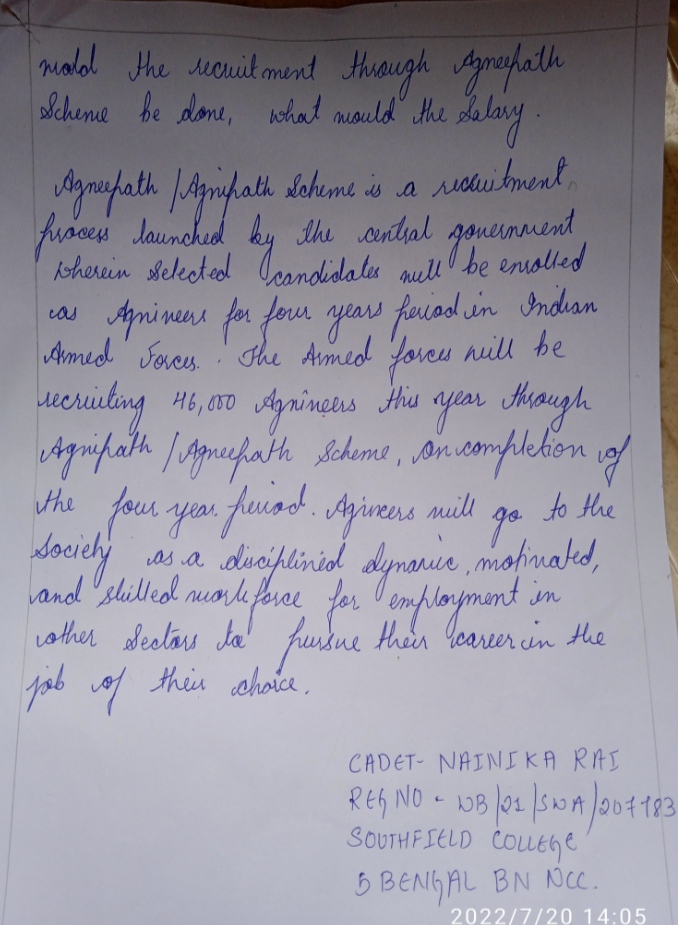 would the recruitment through Agneepath
Scheme be done, what would the Salary.
Agneepath / Agnipath Scheme is a recruitment
process launched by the central government
wherein selected candidates will be enrolled
as Agniveers for four years period in Indian
Armed Forces. The Armed forces will be
recruiting 46,000 Agniveers this year through
Agnipath / Agneepath Scheme, on completion of
the four year period. Agiveers will go to the
Society as a disciplined dynamic, motivated,
and skilled workforce for employment in
other Sectors to pursue their career in the
job of their choice.
CADET- NAINIKA RAI
REG NO - WB/21/SWA/207783
SOUTHFIELD COLLEGE
5 BENGAL BN NCC.
2022/7/20 14:05